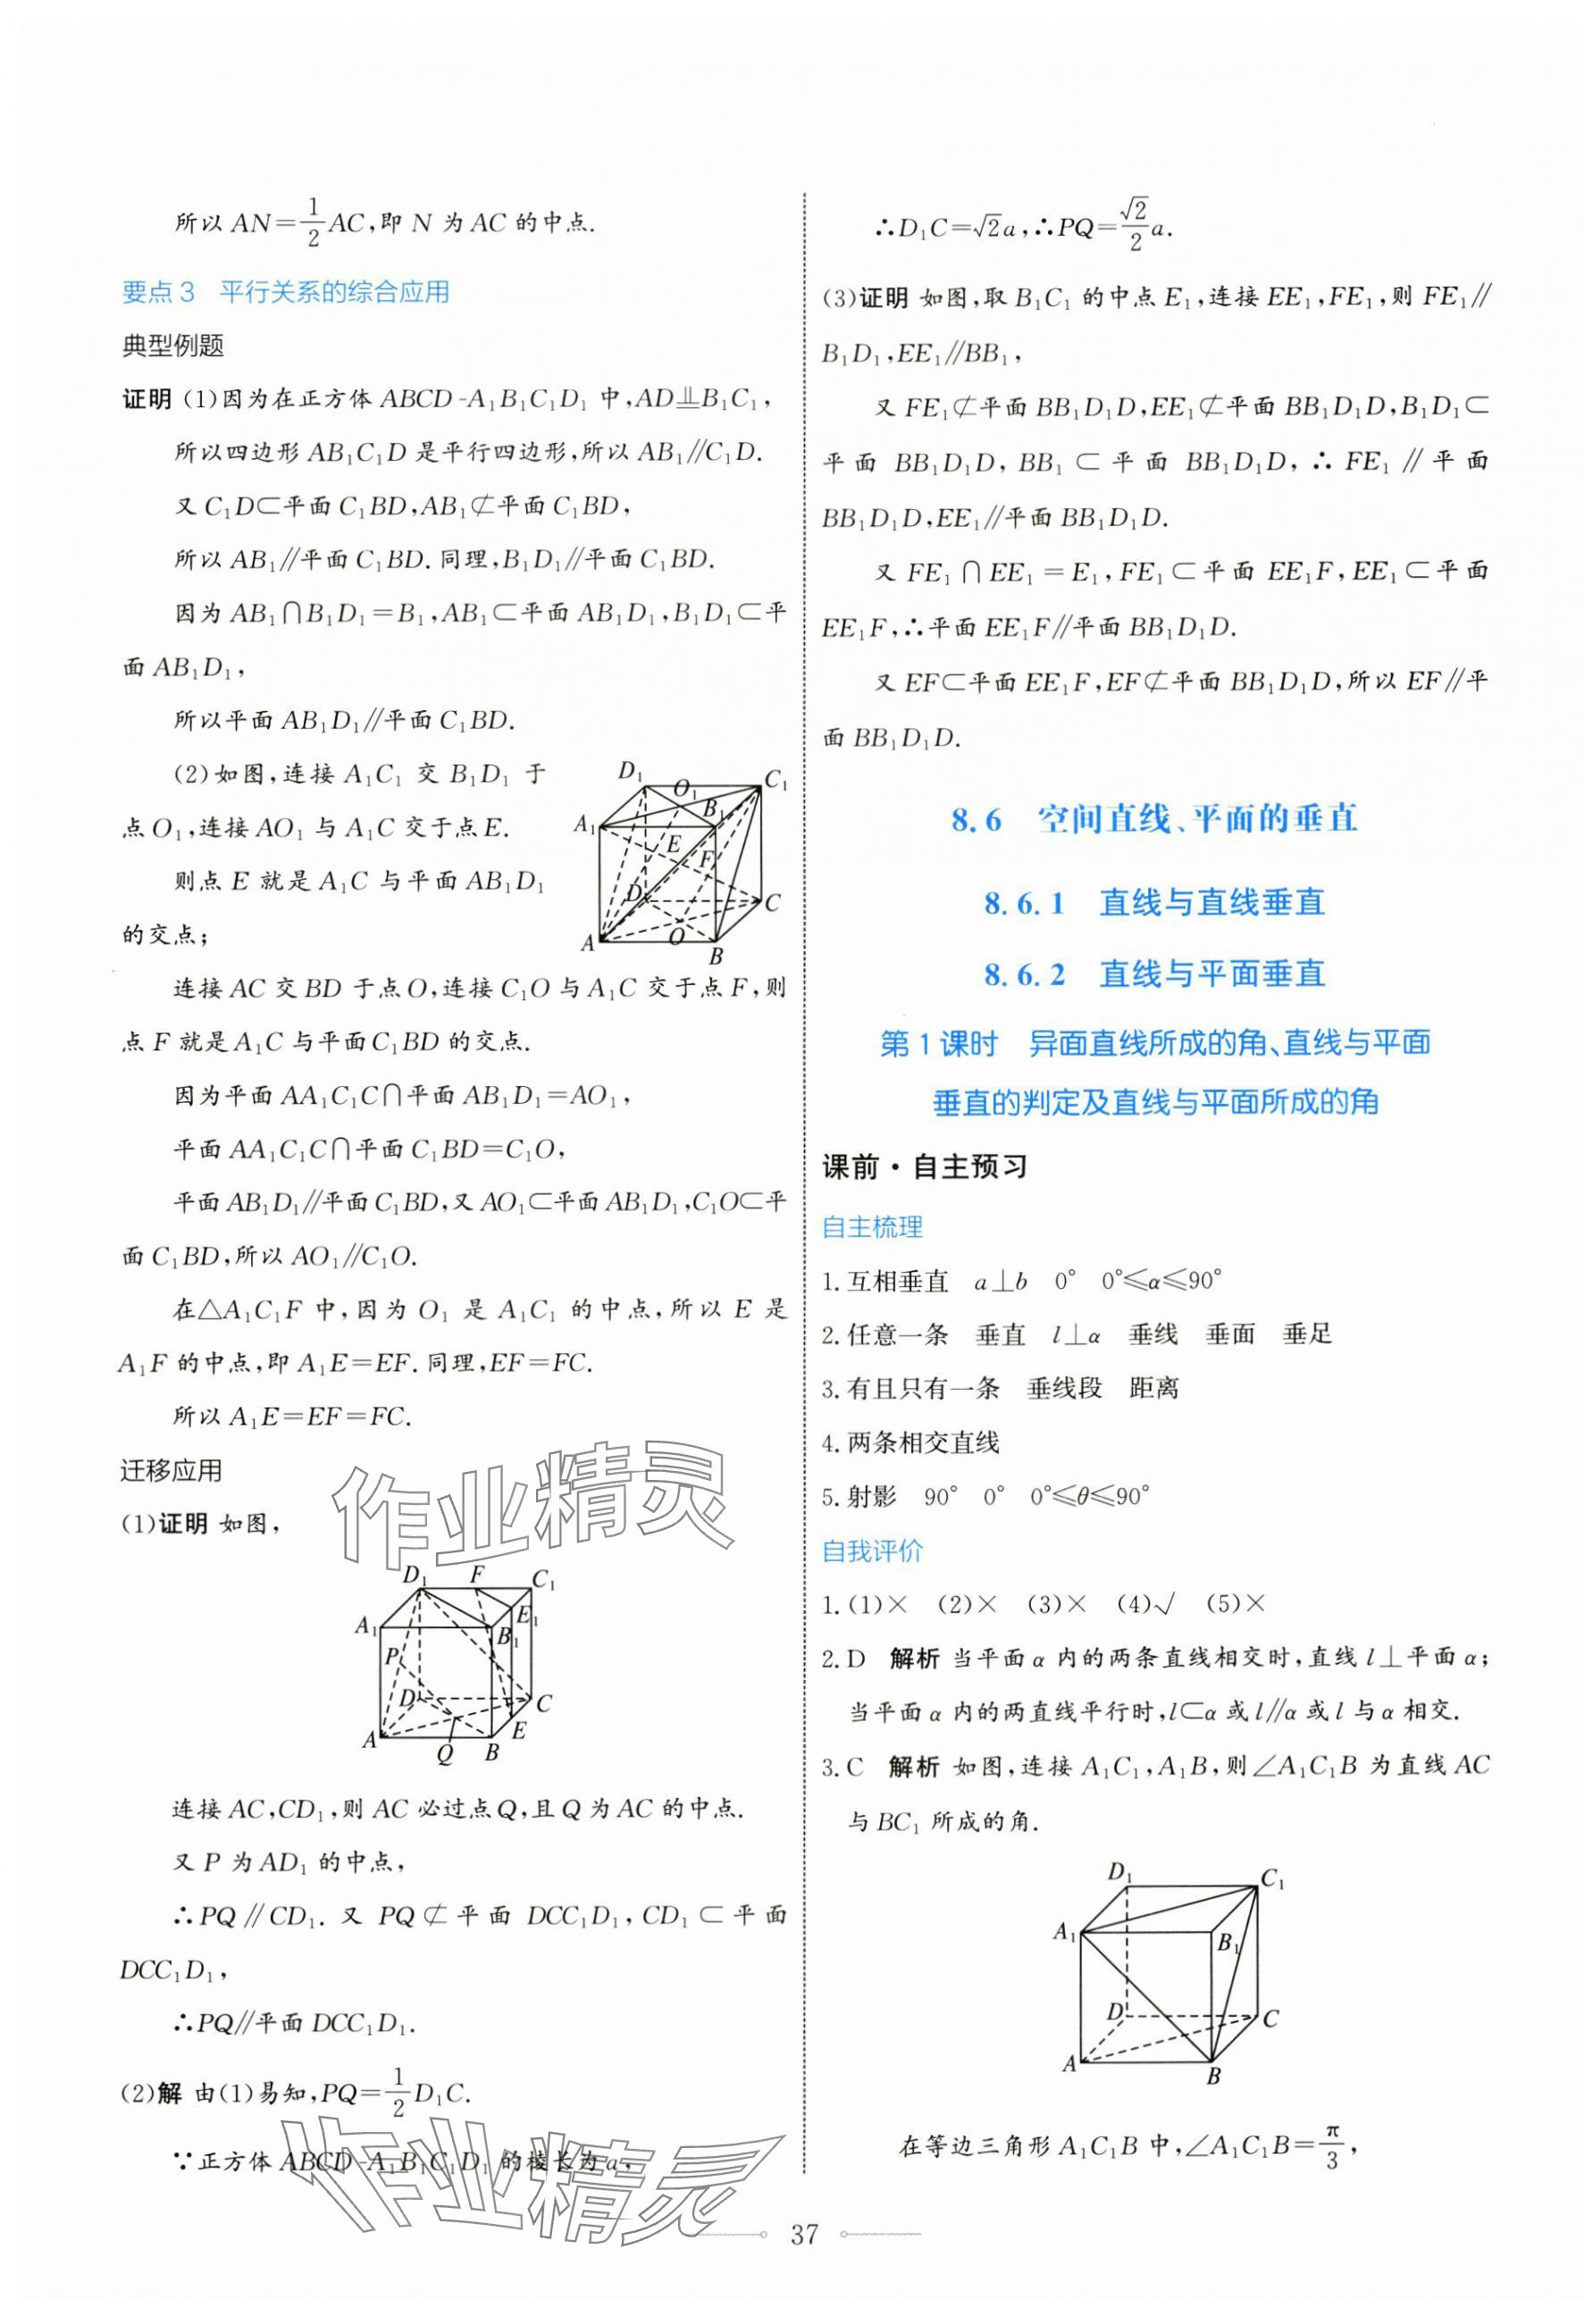 所以 AN=1/2AC,即 N 为 AC 的中点.
要点 3 平行关系的综合应用
典型例题
证明 (1)因为在正方体 ABCD-A₁B₁C₁D₁ 中,AD⫫B₁C₁,
所以四边形 AB₁C₁D 是平行四边形,所以 AB₁∥C₁D.
又 C₁D⊂平面 C₁BD,AB₁⊄平面 C₁BD,
所以 AB₁∥平面 C₁BD.同理,B₁D₁∥平面 C₁BD.
因为 AB₁∩B₁D₁=B₁,AB₁⊂平面 AB₁D₁,B₁D₁⊂平
面 AB₁D₁,
所以平面 AB₁D₁∥平面 C₁BD.
(2)如图,连接 A₁C₁ 交 B₁D₁ 于
点 O₁,连接 AO₁ 与 A₁C 交于点 E.
则点 E 就是 A₁C 与平面 AB₁D₁
的交点;
D₁ O₁ C₁
A₁ B₁
E F
D C
A O B
连接 AC 交 BD 于点 O,连接 C₁O 与 A₁C 交于点 F,则
点 F 就是 A₁C 与平面 C₁BD 的交点.
因为平面 AA₁C₁C∩平面 AB₁D₁=AO₁,
平面 AA₁C₁C∩平面 C₁BD=C₁O,
平面 AB₁D₁∥平面 C₁BD,又 AO₁⊂平面 AB₁D₁,C₁O⊂平
面 C₁BD,所以 AO₁∥C₁O.
在△A₁C₁F 中,因为 O₁ 是 A₁C₁ 的中点,所以 E 是
A₁F 的中点,即 A₁E=EF.同理,EF=FC.
所以 A₁E=EF=FC.
迁移应用
(1)证明 如图,
作业精灵
D₁ F C₁
A₁ B₁ E₁
P
D C
A Q B E
连接 AC,CD₁,则 AC 必过点 Q,且 Q 为 AC 的中点.
又 P 为 AD₁ 的中点,
∴PQ∥CD₁. 又 PQ⊄平面 DCC₁D₁,CD₁⊂平面
DCC₁D₁,
∴PQ∥平面 DCC₁D₁.
(2)解 由(1)易知,PQ=1/2D₁C.
∵正方体 ABCD-A₁B₁C₁D₁ 的棱长为 a,
作业精灵
∴D₁C=√2a,∴PQ=√2/2a.
(3)证明 如图,取 B₁C₁ 的中点 E₁,连接 EE₁,FE₁,则 FE₁∥
B₁D₁,EE₁∥BB₁,
又 FE₁⊄平面 BB₁D₁D,EE₁⊄平面 BB₁D₁D,B₁D₁⊂
平面 BB₁D₁D,BB₁⊂平面 BB₁D₁D,∴FE₁∥平面
BB₁D₁D,EE₁∥平面 BB₁D₁D.
又 FE₁∩EE₁=E₁,FE₁⊂平面 EE₁F,EE₁⊂平面
EE₁F,∴平面 EE₁F∥平面 BB₁D₁D.
又 EF⊂平面 EE₁F,EF⊄平面 BB₁D₁D,所以 EF∥平
面 BB₁D₁D.
8.6 空间直线、平面的垂直
8.6.1 直线与直线垂直
8.6.2 直线与平面垂直
第 1 课时 异面直线所成的角、直线与平面
垂直的判定及直线与平面所成的角
课前·自主预习
自主梳理
1.互相垂直 a⊥b 0° 0°≤α≤90°
2.任意一条 垂直 l⊥α 垂线 垂面 垂足
3.有且只有一条 垂线段 距离
4.两条相交直线
5.射影 90° 0° 0°≤θ≤90°
自我评价
1.(1)× (2)× (3)× (4)√ (5)×
2.D 解析 当平面 α 内的两条直线相交时,直线 l⊥平面 α;
当平面 α 内的两直线平行时,l⊂α 或 l∥α 或 l 与 α 相交.
3.C 解析 如图,连接 A₁C₁,A₁B,则∠A₁C₁B 为直线 AC
与 BC₁ 所成的角.
D₁ C₁
A₁ B₁
D C
A B
在等边三角形 A₁C₁B 中,∠A₁C₁B=π/3,
37